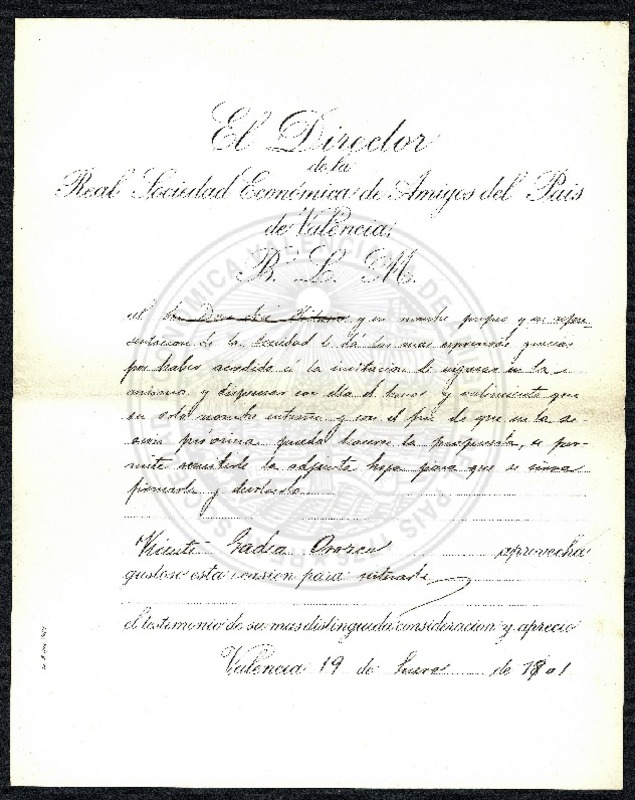 El Director
de la
Real Sociedad Económica de Amigos del Pais
de Valencia
B. L. M.
al Sr. Don José y en nombre propio y en repre-
sentación de la Sociedad le dá las mas expresivas gracias
por haber accedido á la invitación de ingresar en la
misma y dispensar con ello el honor y valimiento que
su solo nombre entraña y con el fin de que en la se-
sion próxima pueda hacerse la propuesta, se per-
mite remitirle la adjunta hoja para que se sirva
firmarla y devolverla
Vicente Gadea Orozco aprovecha
gustoso esta ocasion para reiterarle
el testimonio de su mas distinguida consideracion y aprecio
Valencia 19 de Enero de 1901